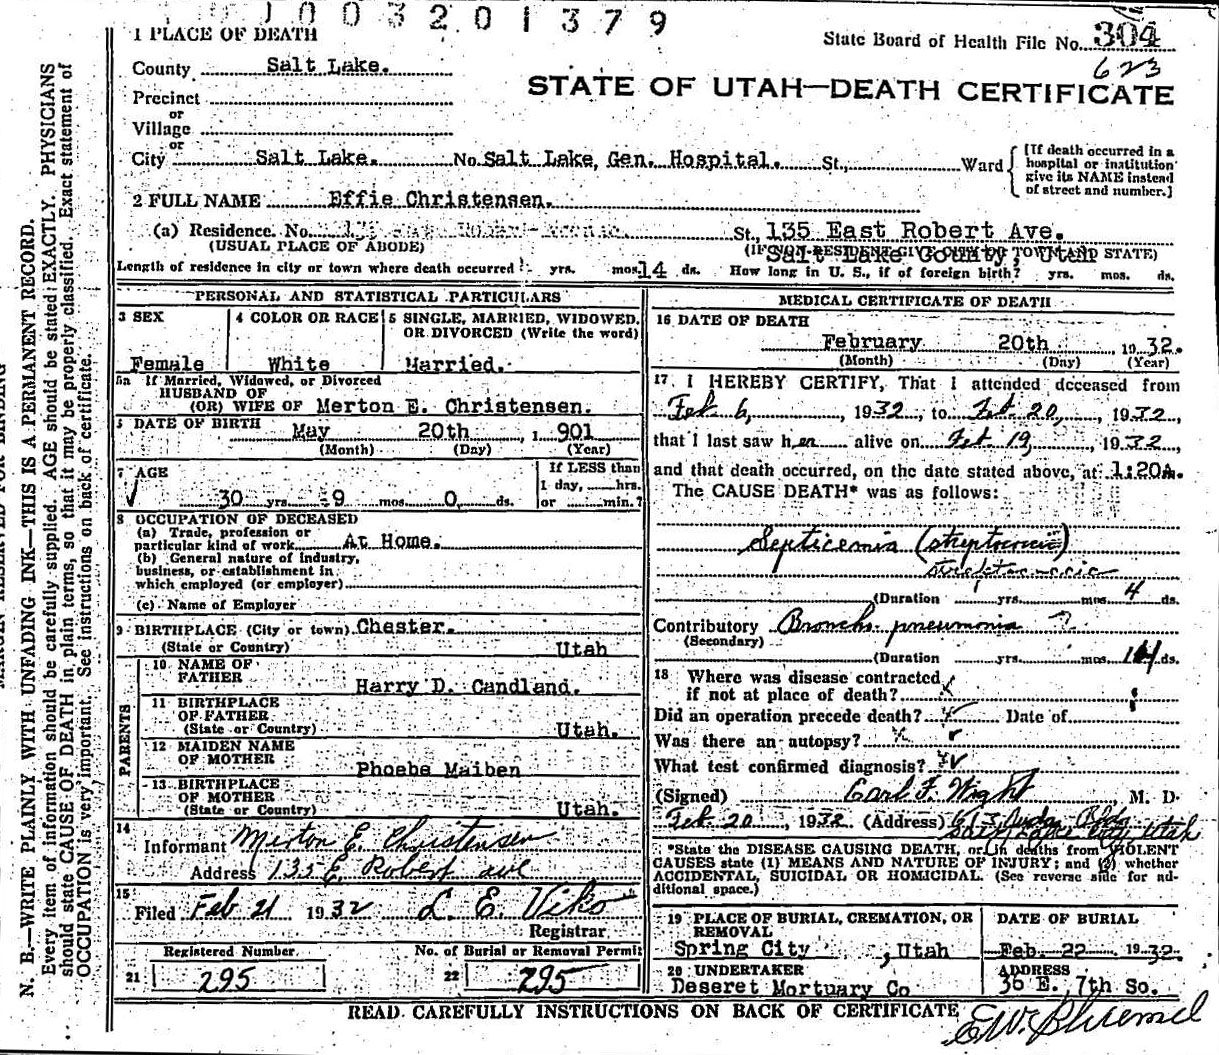 003201379
1 PLACE OF DEATH
State Board of Health File No. 304
623
County Salt Lake.
STATE OF UTAH—DEATH CERTIFICATE
Precinct
or
Village
or
City Salt Lake. No. Salt Lake, Gen. Hospital. St., Ward
[If death occurred in a
hospital or institution
give its NAME instead
of street and number.]
2 FULL NAME Effie Christensen.
(a) Residence. No. St., 135 East Robert Ave.
(USUAL PLACE OF ABODE) (IF NON-RESIDENT GIVE CITY OR TOWN AND STATE)
Salt Lake County, Utah
Length of residence in city or town where death occurred? yrs. mos. 14 ds. How long in U. S., if of foreign birth? yrs. mos. ds.
PERSONAL AND STATISTICAL PARTICULARS
3 SEX
Female
4 COLOR OR RACE
White
5 SINGLE, MARRIED, WIDOWED,
OR DIVORCED (Write the word)
Married.
5a If Married, Widowed, or Divorced
HUSBAND OF
(OR) WIFE OF Merton E. Christensen.
DATE OF BIRTH
May 20th, 1901
(Month) (Day) (Year)
7 AGE
30 yrs. 9 mos. 0 ds.
If LESS than
1 day, hrs.
or min.?
8 OCCUPATION OF DECEASED
(a) Trade, profession or
particular kind of work At Home.
(b) General nature of industry,
business, or establishment in
which employed (or employer)
(c) Name of Employer
9 BIRTHPLACE (City or town) Chester.
(State or Country) Utah
PARENTS
10 NAME OF
FATHER Harry D. Candland.
11 BIRTHPLACE
OF FATHER
(State or Country) Utah.
12 MAIDEN NAME
OF MOTHER Phoebe Maiben
13 BIRTHPLACE
OF MOTHER
(State or Country) Utah.
14
Informant Merton E. Christensen
Address 135 E. Robert ave
15
Filed Feb 21 1932 L. E. Viko
Registrar
Registered Number. No. of Burial or Removal Permit
21 295 22 295
MEDICAL CERTIFICATE OF DEATH
16 DATE OF DEATH
February 20th 1932.
(Month) (Day) (Year)
17 I HEREBY CERTIFY, That I attended deceased from
Feb 6, 1932 to Feb 20, 1932
that I last saw her alive on Feb 19, 1932
and that death occurred, on the date stated above, at 1:20A.
The CAUSE DEATH* was as follows:
Septicemia (streptococcic)
streptococcic
(Duration yrs. mos. 4 ds.
Contributory Broncho pneumonia ?
(Secondary)
(Duration yrs. mos. 14 ds.
18 Where was disease contracted
if not at place of death?
Did an operation precede death? Date of
Was there an autopsy?
What test confirmed diagnosis?
(Signed) Earl F. Wight M. D.
Feb 20, 1932 (Address) Utah
*State the DISEASE CAUSING DEATH, or, in deaths from VIOLENT
CAUSES state (1) MEANS AND NATURE OF INJURY; and (2) whether
ACCIDENTAL, SUICIDAL OR HOMICIDAL. (See reverse side for ad-
ditional space.)
19 PLACE OF BURIAL, CREMATION, OR
REMOVAL
Spring City, Utah
DATE OF BURIAL
Feb. 22 1932.
20 UNDERTAKER
Deseret Mortuary Co
ADDRESS
36 E. 7th So.
READ CAREFULLY INSTRUCTIONS ON BACK OF CERTIFICATE
N. B.—WRITE PLAINLY WITH UNFADING INK—THIS IS A PERMANENT RECORD.
Every item of information should be carefully supplied. AGE should be stated EXACTLY. PHYSICIANS
should state CAUSE OF DEATH in plain terms, so that it may be properly classified. Exact statement of
OCCUPATION is very important. See instructions on back of certificate.